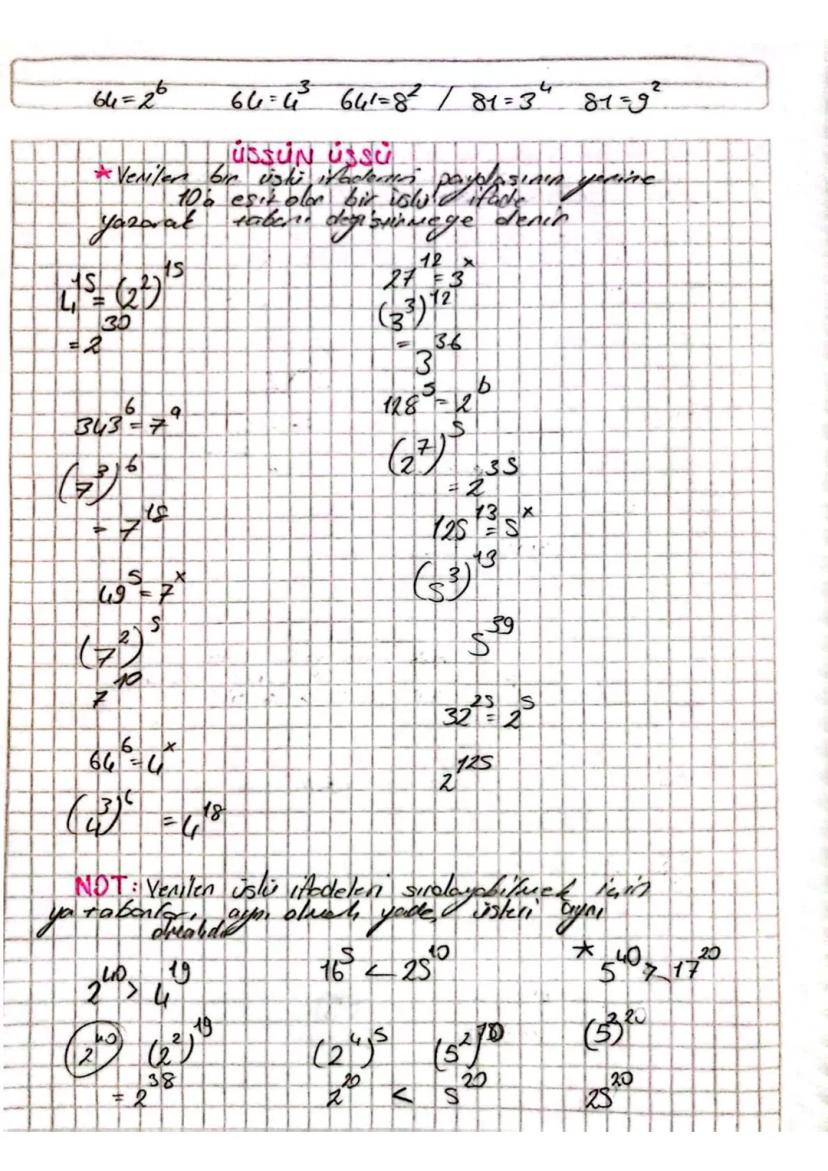 64=2^6 64=4^3 64=8^2 / 81=3^4 81=9^2
ÜSSÜN ÜSSÜ
* Verilen bir üslü ifadenin yerine
eşit olan bir üslü ifade
yazarak tabanı değiştirmeye denir
4^15=(2^2)^15
=2^30
343^6=7^a
(7^3)^6
=7^18
49^5=7^x
(7^2)^5
7^10
64^6=4^x
(4^3)^6 =4^18
27^12=3^x
(3^3)^12
=3^36
128^5=2^b
(2^7)^5
=2^35
125^13=5^x
(5^3)^13
5^39
32^25=2^5
2^125
NOT: Verilen üslü ifadeleri sıralayabilmek için
ya tabanları aynı olmalı yada üsleri aynı
olmalıdır
2^40 > 4^19 16^5 < 25^10 * 5^40 > 17^20
2^40 (2^2)^19 (2^4)^5 (5^2)^10 (5^2)^20
=2^38 2^20 < 5^20 25^20